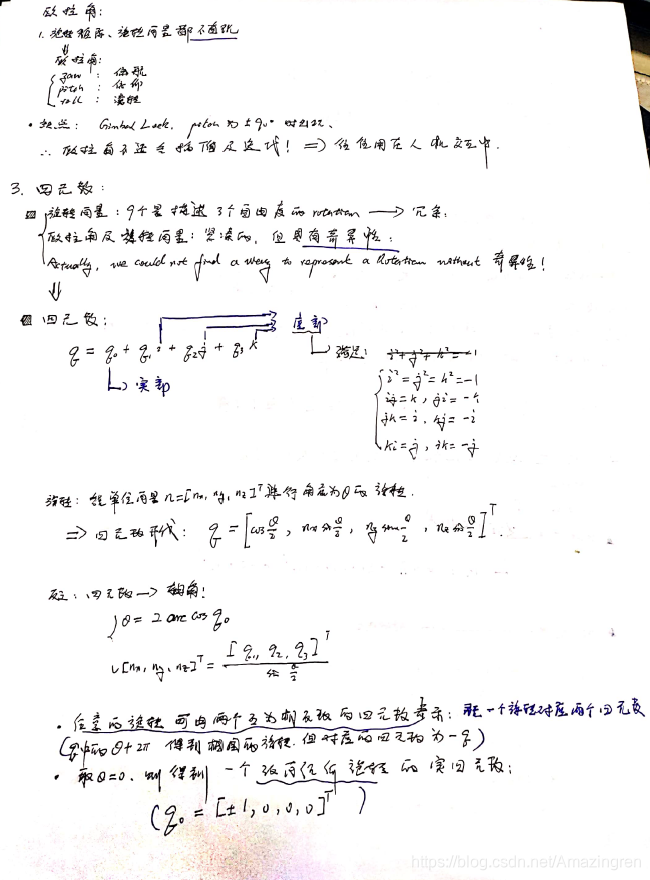 欧拉角:
1. 旋转矩阵、旋转向量都不直观
⇓
欧拉角:
yaw : 偏航
pitch : 俯仰
roll : 滚转
• 缺点: Gimbal Lock, pitch为±90°时出现、
∴ 欧拉角不适合插值及迭代! ⇒ 往往用在人机交互中.
3. 四元数:
旋转向量: 9个量描述3个自由度的rotation → 冗余;
欧拉角及旋转向量: 紧凑的, 但具有奇异性;
Actually, we could not find a way to represent a Rotation without 奇异性!
⇓
四元数:
虚部
q = q₀ + q₁i + q₂j + q₃k
满足: i²+j²+k²=-1
实部
i²=j²=k²=-1
ij=k, ji=-k
jk=i, kj=-i
ki=j, ik=-j
旋转: 绕单位向量 n=[nx, ny, nz]ᵀ 进行角度为θ的旋转.
⇒ 四元数形式: q = [cos θ/2, nx sin θ/2, ny sin θ/2, nz sin θ/2]ᵀ.
反之: 四元数 → 轴角!
θ = 2 arc cos q₀
[nx, ny, nz]ᵀ = [q₁, q₂, q₃]ᵀ / sin θ/2
• 任意的旋转可由两个互为相反数的四元数表示: 一个旋转对应两个四元数
(q中的θ+2π 得到相同的旋转. 但对应的四元数为-q)
• 取θ=0. 则得到一个没有任何旋转的实四元数;
(q₀ = [±1, 0, 0, 0]ᵀ)
https://blog.csdn.net/Amazingren